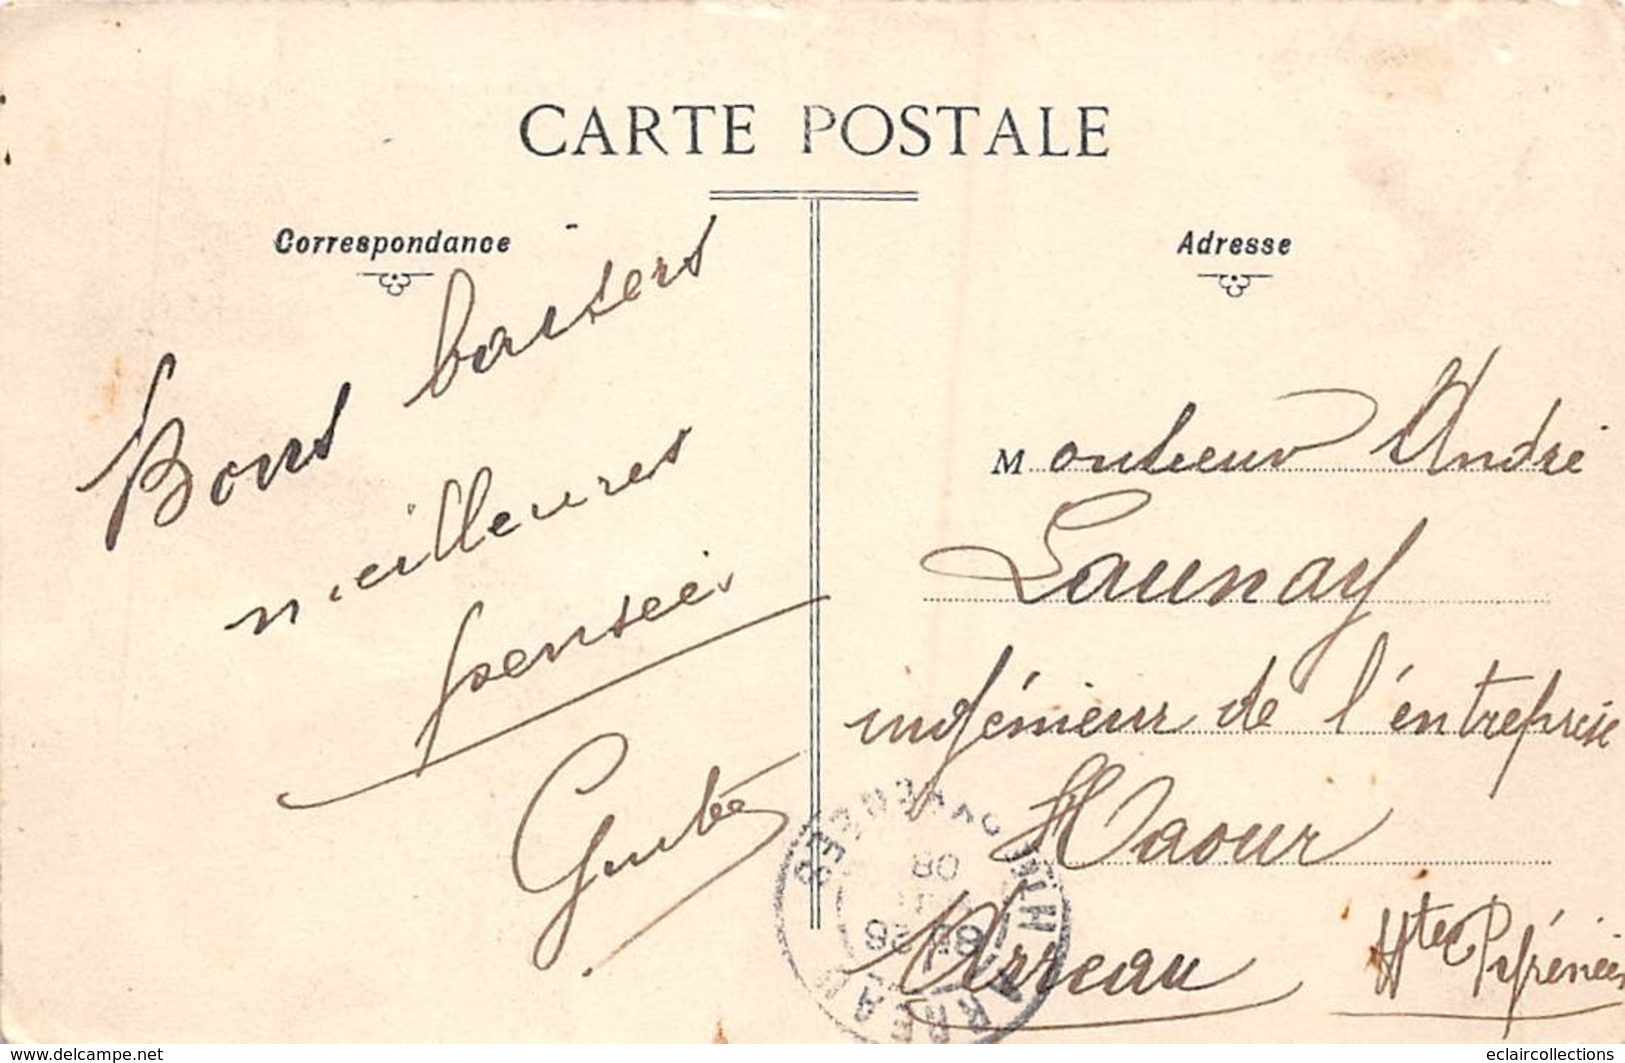 CARTE POSTALE
Correspondance
Adresse
Bons baisers
meilleures
pensées
Monsieur André
Launay
ingénieur de l'entreprise
Haour
Arreau Htes Pyrénées
ARREAU
08
www.delcampe.net
eclaircollections